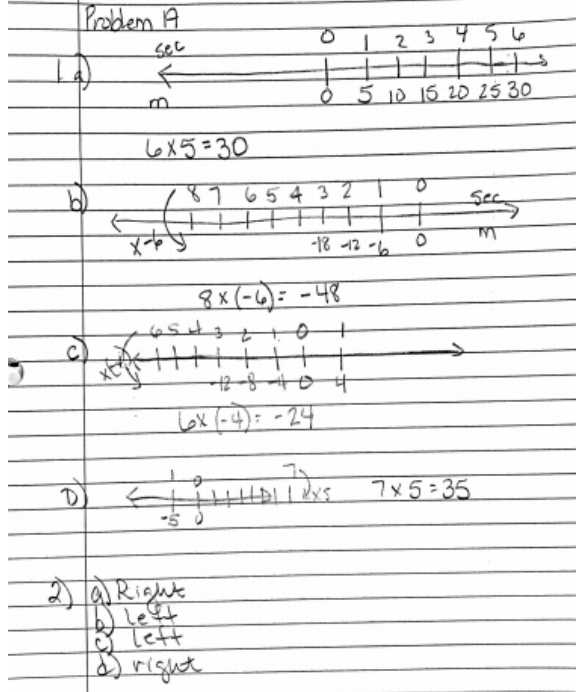 Problem 1A
1 a)
sec 0 1 2 3 4 5 6
m 0 5 10 15 20 25 30
6x5=30
b) 8 7 6 5 4 3 2 1 0 sec
x-6 -18 -12 -6 0 m
8x(-6)= -48
c) 6 5 4 3 2 1 0 1
-12 -8 -4 0 4
6x(-4)= -24
D) 1 0 7 x5 7x5=35
-5 0
2) a) Right
b) left
c) left
d) right